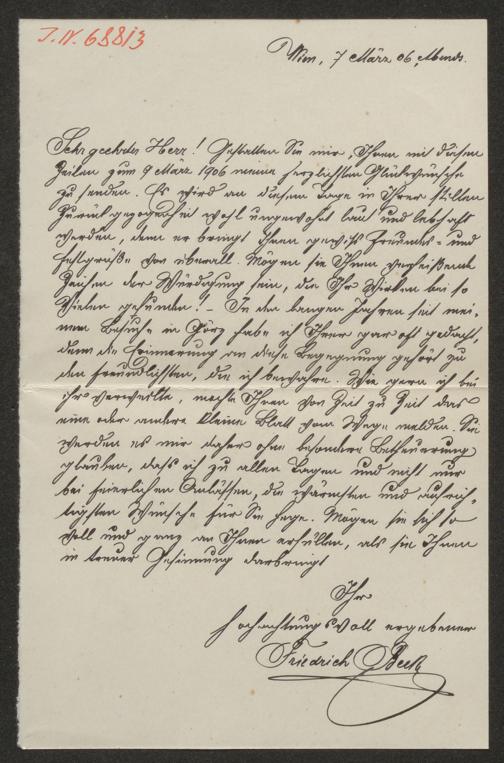 J.N. 68813
Wien, 7 März 06, Abends.
Sehr geehrter Herr! Gestatten Sie mir, Ihnen mit diesen
Zeilen zum 9 März 1906 meine herzlichsten Glückwünsche
zu senden. Es wird an diesem Tage in Ihrer stillen
Zurückgezogenheit wohl ungewohnt laut und lebhaft
werden, denn er bringt Ihnen gewiß Freundes- und
Festgrüße von überall. Mögen sie Ihnen verheißende
Zeichen der Würdigung sein, die Ihr Wirken bei so
Vielen gefunden! – In den langen Jahren seit mei-
nem Besuche in Görz habe ich Ihrer gar oft gedacht,
denn die Erinnerung an diese Begegnung gehört zu
den freundlichsten, die ich bewahre. Wie gern ich bei
ihr verweilte, mochte Ihnen von Zeit zu Zeit das
eine oder andere kleine Blatt vom Wege melden. Sie
werden es mir daher ohne besondere Betheuerung
glauben, dass ich zu allen Tagen und nicht nur
bei feierlichen Anlässen, die wärmsten und aufrich-
tigsten Wünsche für Sie hege. Mögen sie sich so
voll und ganz an Ihnen erfüllen, als sie Ihnen
in treuer Gesinnung darbringt
Ihr
hochachtungsvoll ergebener
Friedrich Beck